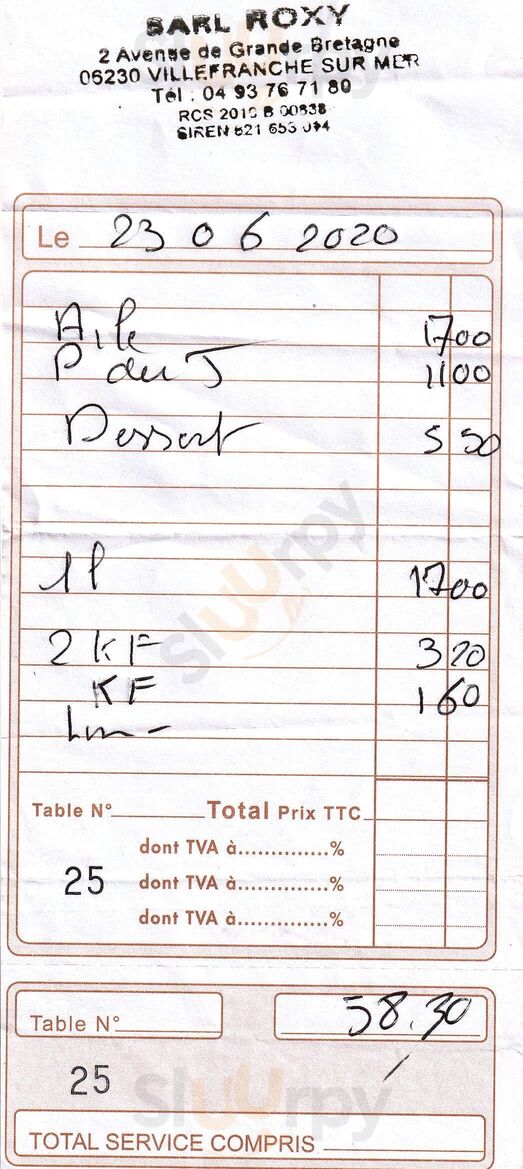 SARL ROXY
2 Avenue de Grande Bretagne
06230 VILLEFRANCHE SUR MER
Tél : 04 93 76 71 80
RCS 2010 B 00838
SIREN 521 653
Le 23 06 2020
Aile 1700
P du J 1100
Dessert 5 50
1l 1700
2 KF 3 20
KF 1 60
Table N° Total Prix TTC
dont TVA à..............%
25 dont TVA à..............%
dont TVA à..............%
Table N° 58.30
25
TOTAL SERVICE COMPRIS
sluurpy
sluurpy